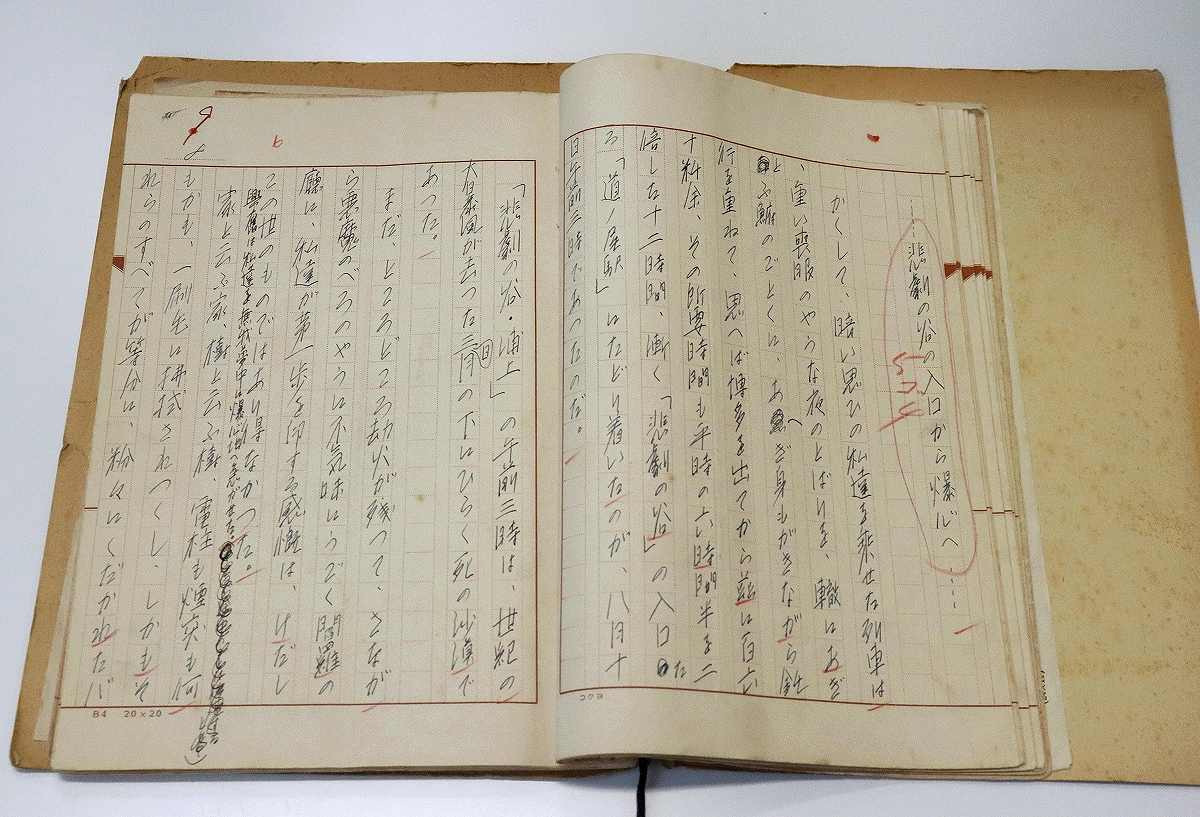 ……悲劇の谷の入口から爆心へ……
かくして、暗い思ひの私達を乗せた列車は
、重い喪服のやうな夜のとばりを、轍はあぎ
とふ鯨のごとくに、あへぎ身もがきながら鈍
行を重ねて、思へば博多を出てから茲に百六
十粁余、その所要時間も平時の六時間半を二
倍した十二時間、漸く「悲劇の谷」の入口た
る「道ノ尾駅」にたどり着いたのが、八月十
日午前三時であつたのだ。
「悲劇の谷・浦上」の午前三時は、世紀の
大暴風が去つた三日月の下にひらく死の沙漠で
あつた。
まだ、ところどころ劫火が残つて、さなが
ら悪魔のべろのやうに不気味にうごく閻羅の
廰に、私達が第一歩を印する感慨は、けだし
この世のものではあり得なかつた。
興奮は私達を無我夢中に爆心地へ急がせた。
家と云ふ家、樹と云ふ樹、電柱も煙突も何
もかも、一刷毛に拂拭されつくし、しかもそ
れらのすべてが等分に、粉々にくだかれたバ
B4 20×20
コクヨ